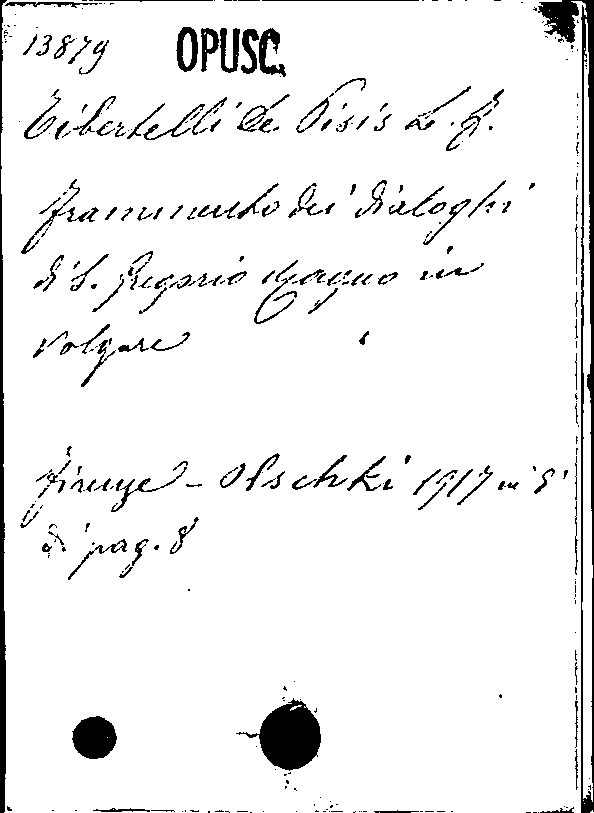 13879 OPUSC.
Tibertelli De Pisis L. F.
Frammento dei dialoghi
di S. Gregorio Magno in
volgare
Firenze - Olschki 1917 in 8°
di pag. 8